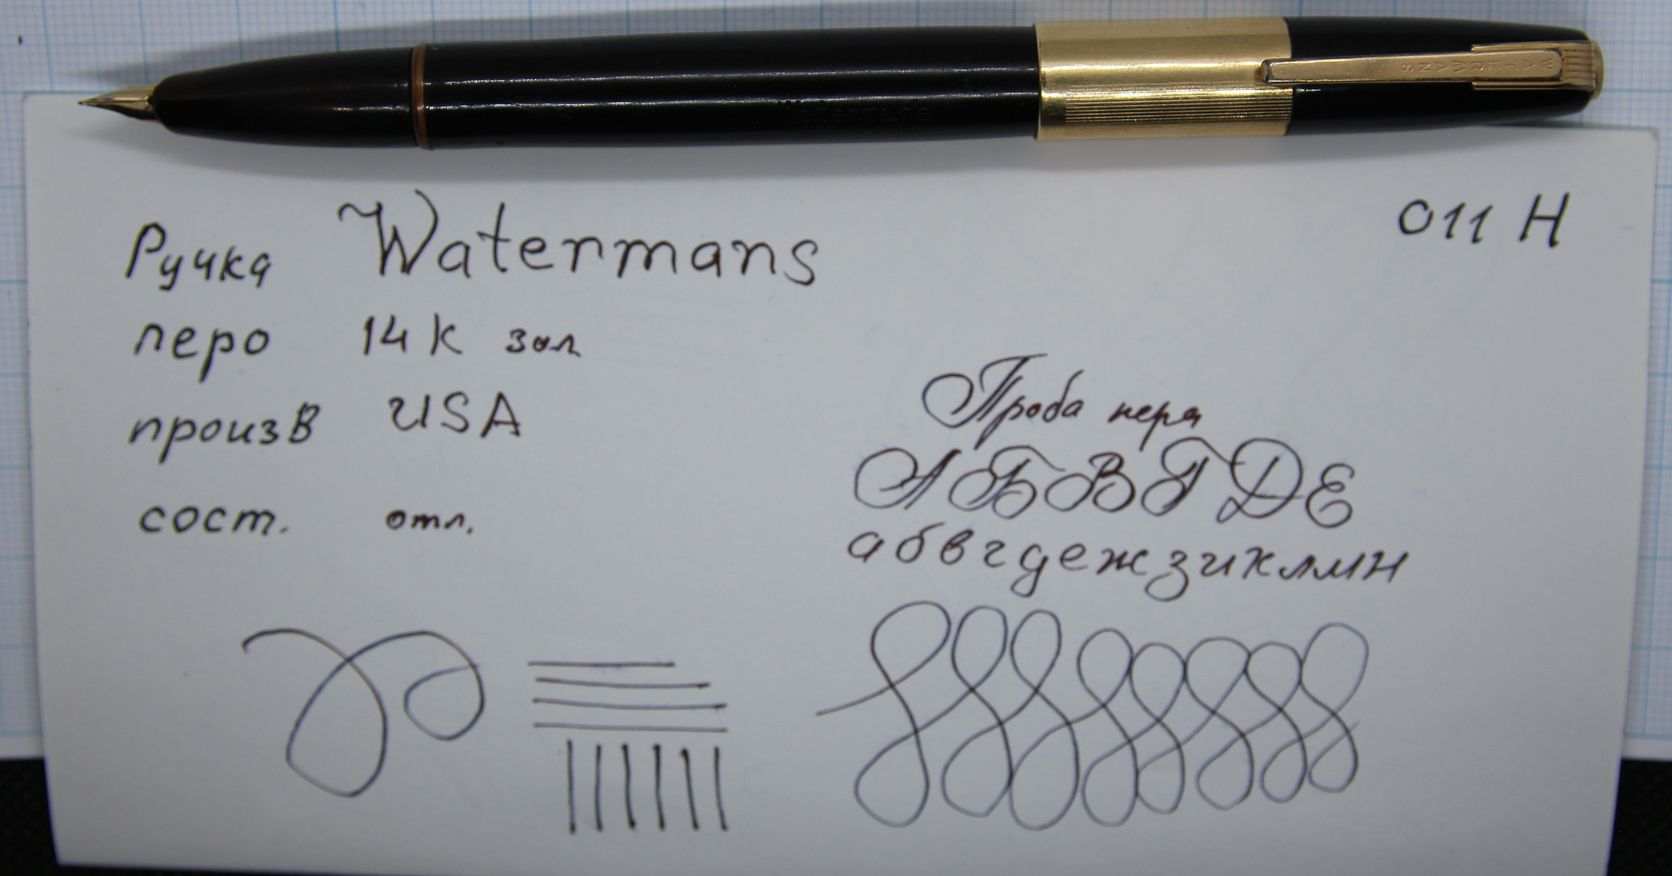 Ручка Watermans
011 Н
перо 14 К зол
произв USA
сост. отл.
Проба пера
А Б В Г Д Е
а б в г д е ж з и к л м н